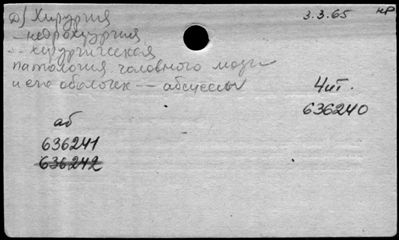 д) Хирургия 3.3.65 нр
— нейрохирургия
-- хирургическая
патология головного мозга
и его оболочек -- абсцессы
Чит.
636240
аб
636241
636242